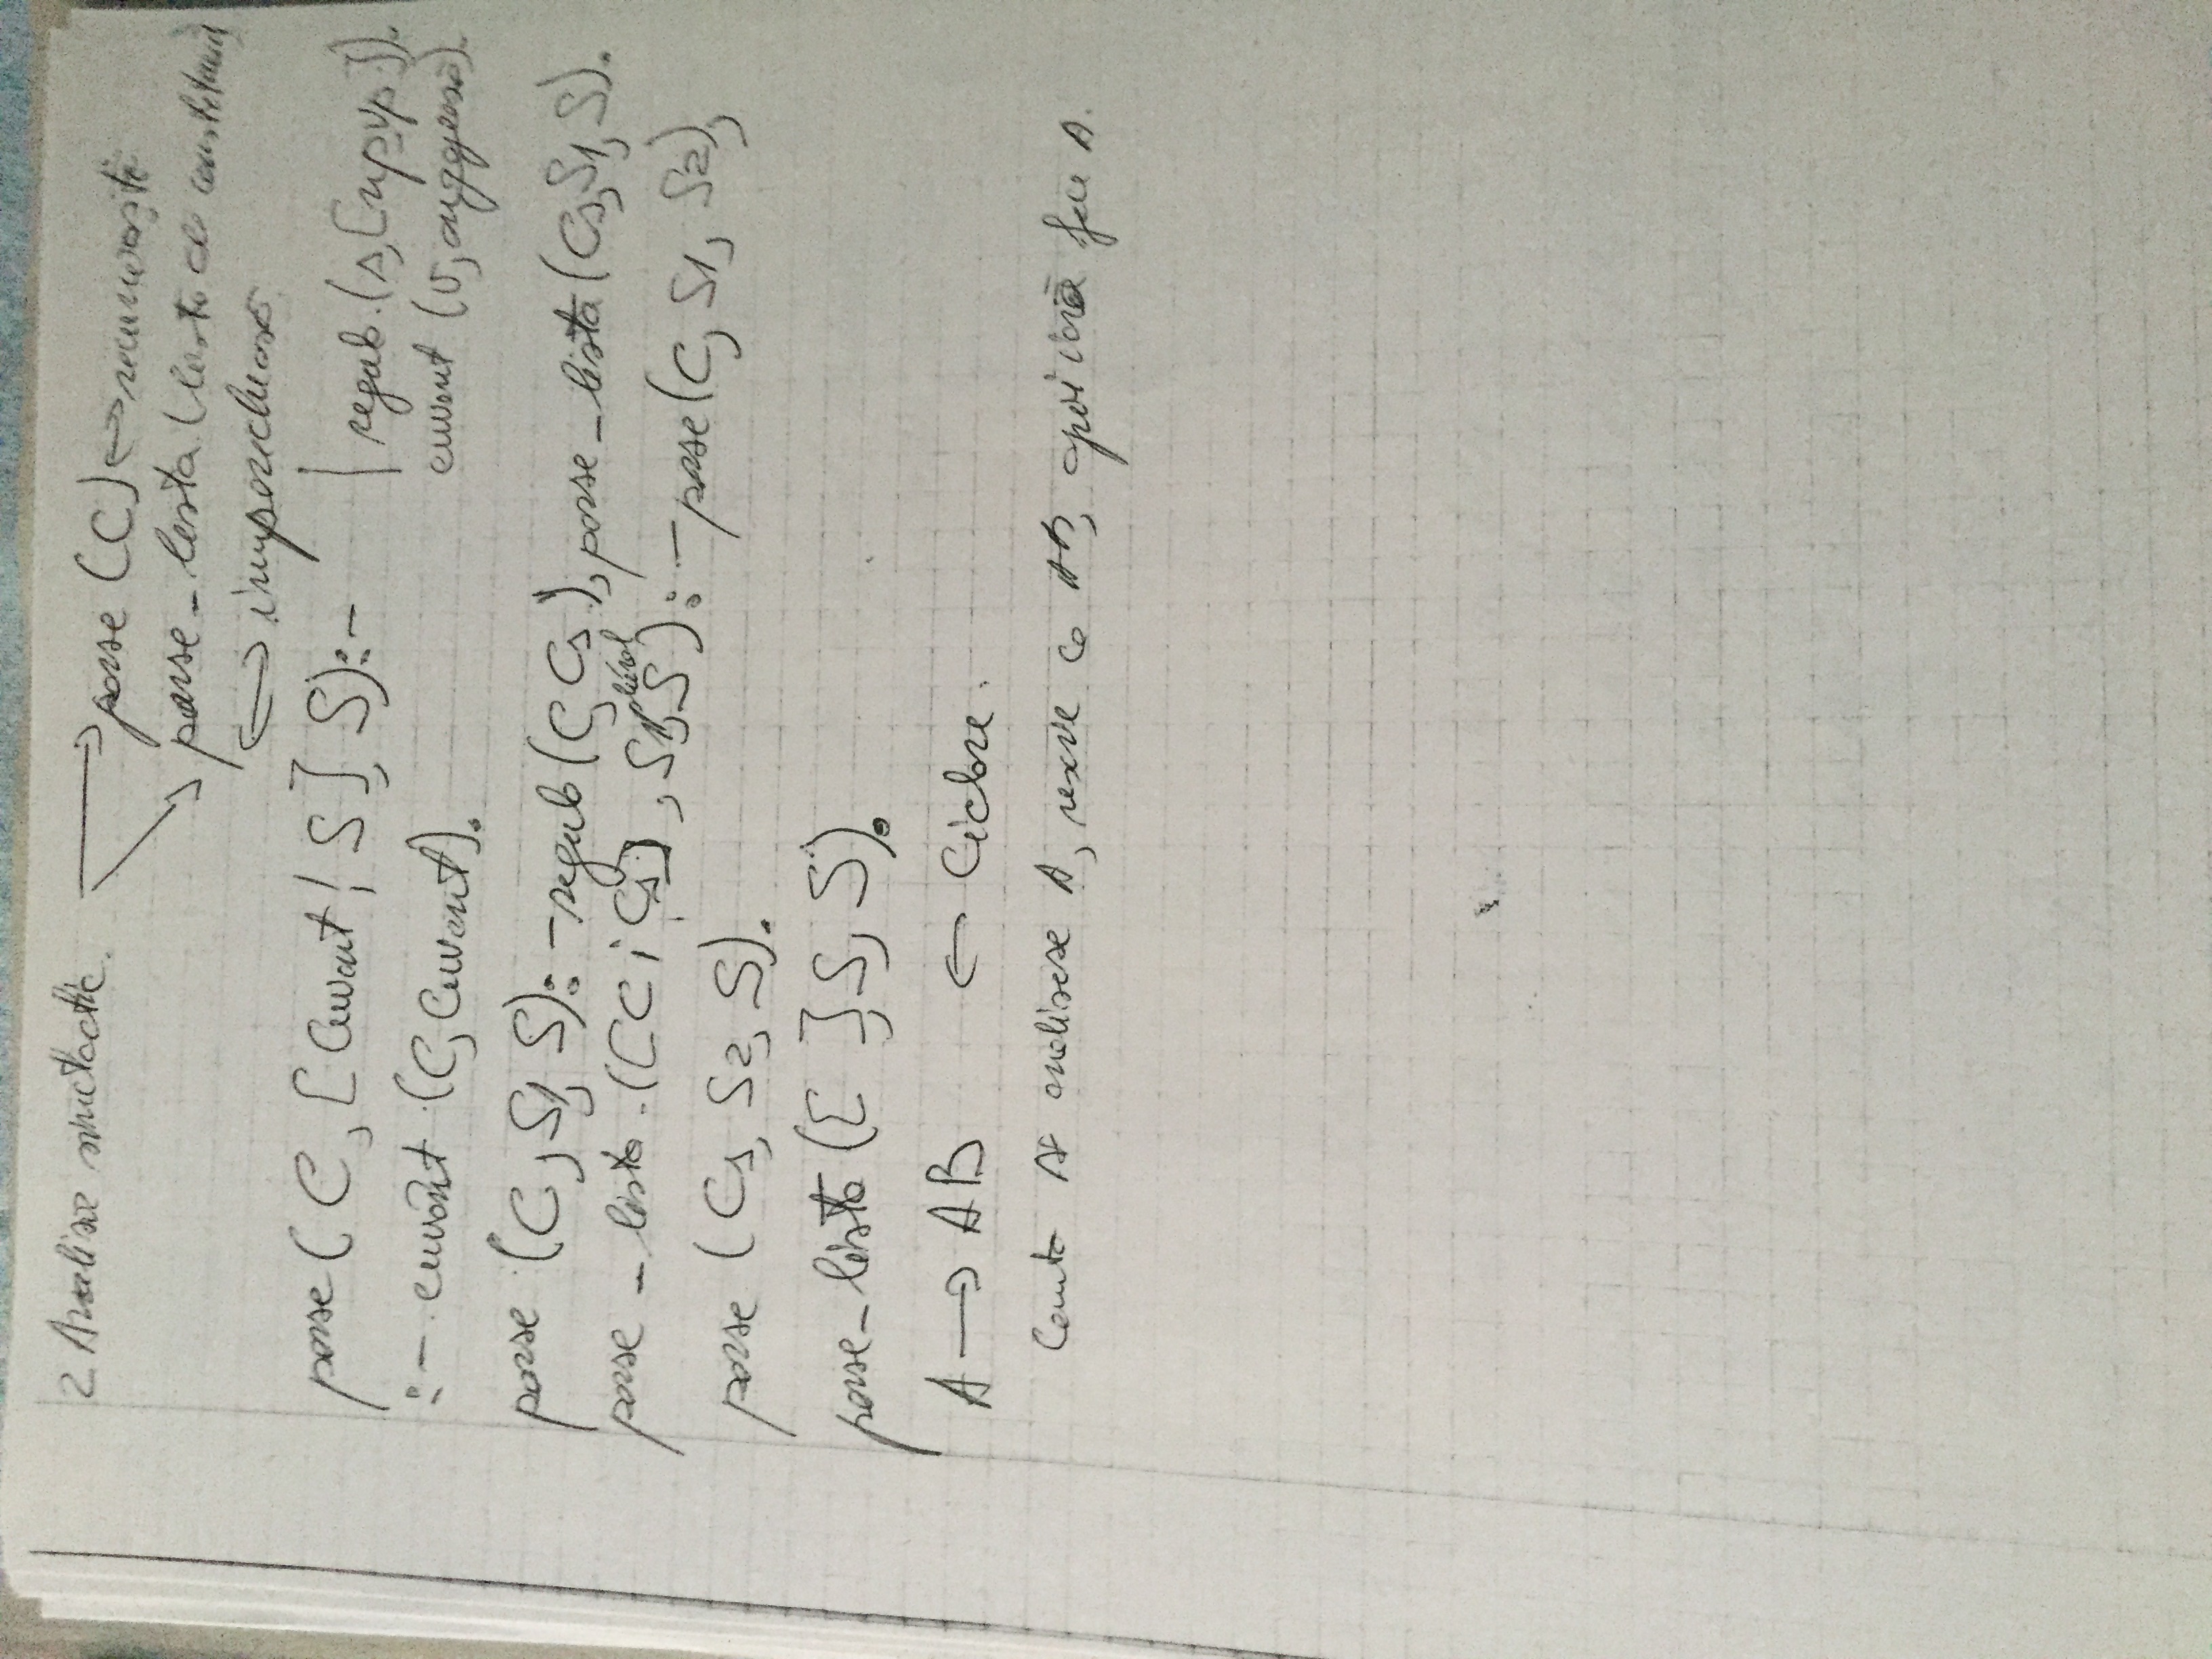 2 Analiza sintactic.
→ parse (C) ↔ recursivitate
→ parse_lista (lista de constituenți
↔ imperecheas
parse ( C, [Cuvant | S], S):-
:- cuvânt (C, Cuvant).
| regula (s, [np, vp]).
cuvant (v, angajeaza).
parse (C, S1, S):- regula (C, Cs), parse_lista (Cs, S1, S).
plural
parse_lista ([C | Cs], S1, S):- parse (C, S1, S2),
parse (Cs, S2, S).
parse_lista ([ ], S, S).
A → AB ← Ciclare.
Cauta sa analizeze A, rescrie ca AB, apoi iară face A.